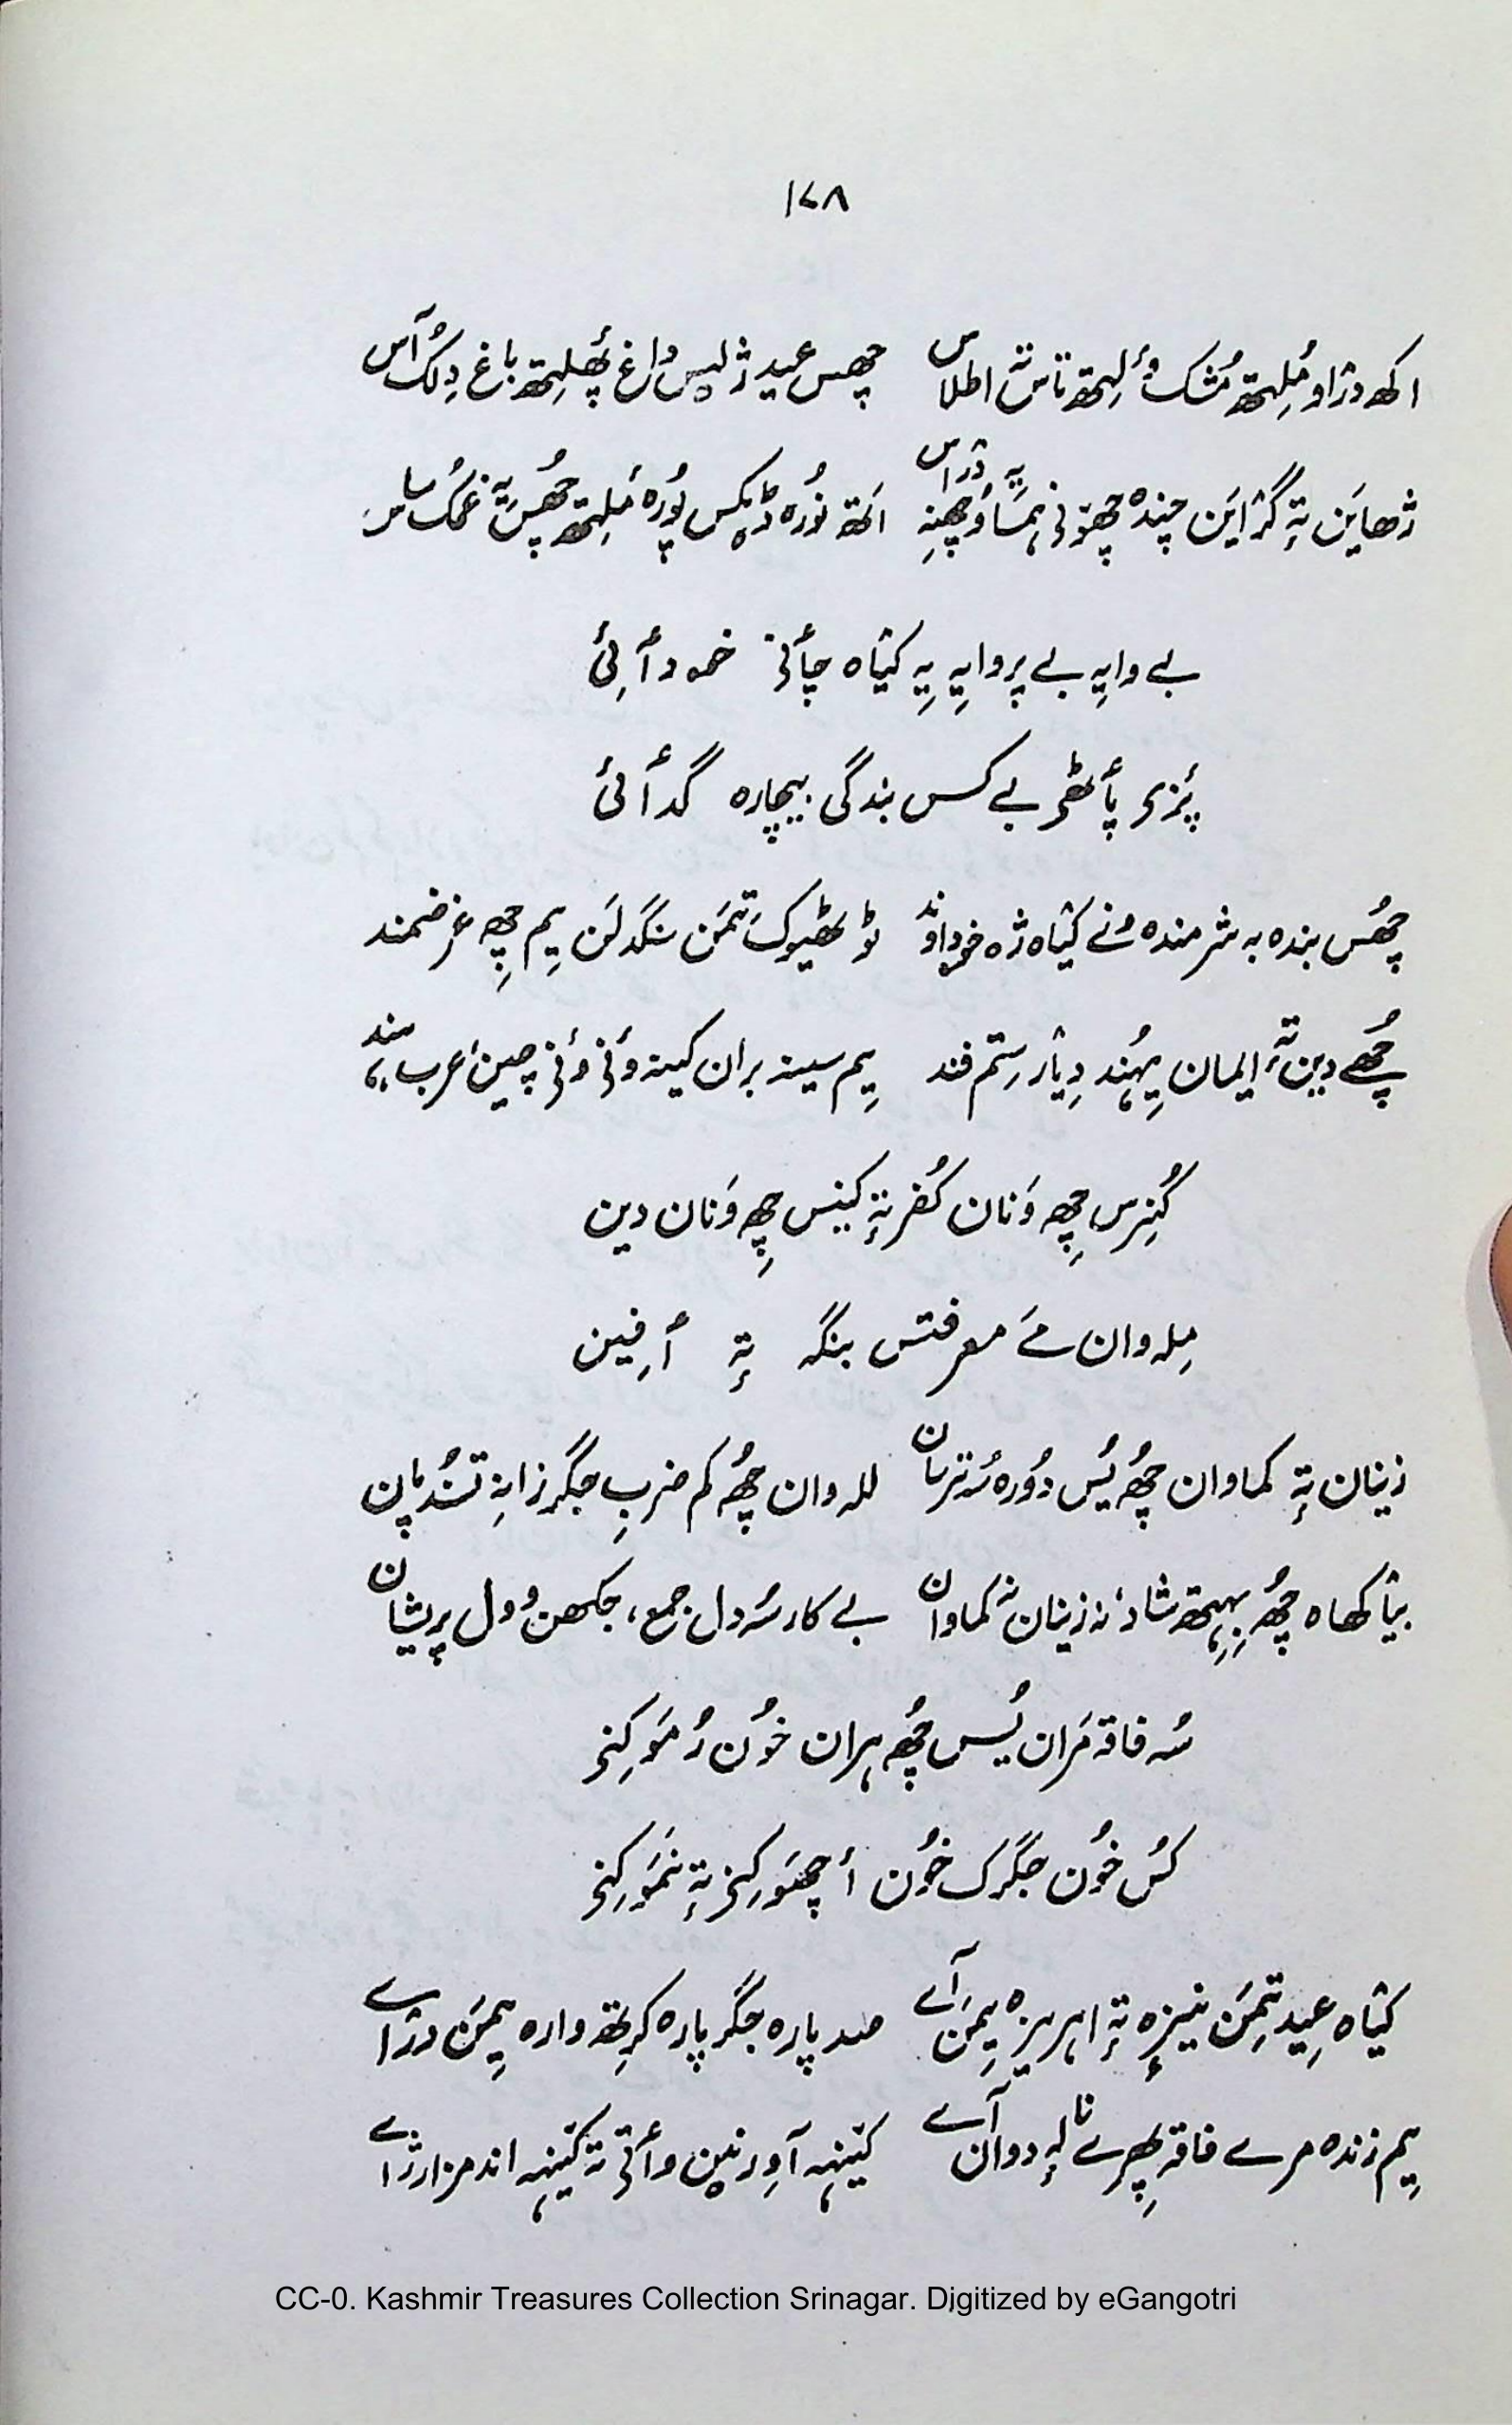 ۱۷۸
اکھ دژاو مُلِہتھ مُشک وٲلِہتھ تاس تہٕ اطلاس چھس عید ژلیس داغ پھٔلِہتھ باغ دِلُک آس
ژھایَن تہٕ گژایَن چندہ چھۄنی ہمسا وُچھنہِ یہٕ دژاس اَتھ نُورہ ڈیکس پُورہ مٔلِہتھ چھُس غمُک ساس
بے وایہِ بے پروایہِ یہِ کیٛاہ چٲنۍ خود آرٲئی
پٔزۍ پٲٹھۍ بے کس بندگی بیچارہ گدٲئی
چھُس بندہ بہ شرمندہ ونے کیٛاہ ژہ خوداوند ٹوٹھیوکَ تتمَن سنگدلَن یِم چھِہ غرضمند
چھُے دین تہٕ ایمان یِہُند دیٛار رستم فند یِم سینہ بران کینہ وٲنۍ وٲنۍ چین، عرب، ہند
کُنِرس چھِہ وَنان کُفر تہٕ کینس چھِہ وَنان دین
مِلہ وان مَے معرفتس بنگہ تہٕ أفِین
زینان تہٕ کماوان چھُہ یُس دُورہ سُہ ترسان للہ وان چھُہ کم ضربِ جگر زانہِ تسُند پان
بیٛاکھاہ چھُہ بِہِتھ شاد نہ زینان نہ کماوان بے کار سُہ دل جمع، جکھن وول پریشان
سُہ فاقہ مَران یُس چھُہ ہران خوٗن رُمَو کِنۍ
کُس خوٗن جگرُک خوٗن أچھَو کِنۍ تہٕ نَمَو کِنۍ
کیٛاہ عِید تِمَن نیزہ تہٕ اہریزہ یِمَن آے صد پارہ جگر پارہ کرِتھ وارہ یِمَن دژاے
یِم زندہ مرے فاقہ پھِرے نالہٕ دوان آے کیٛنہہ آوِرنین وٲتۍ تہٕ کیٛنہہ اند مزارژاے
CC-0. Kashmir Treasures Collection Srinagar. Digitized by eGangotri